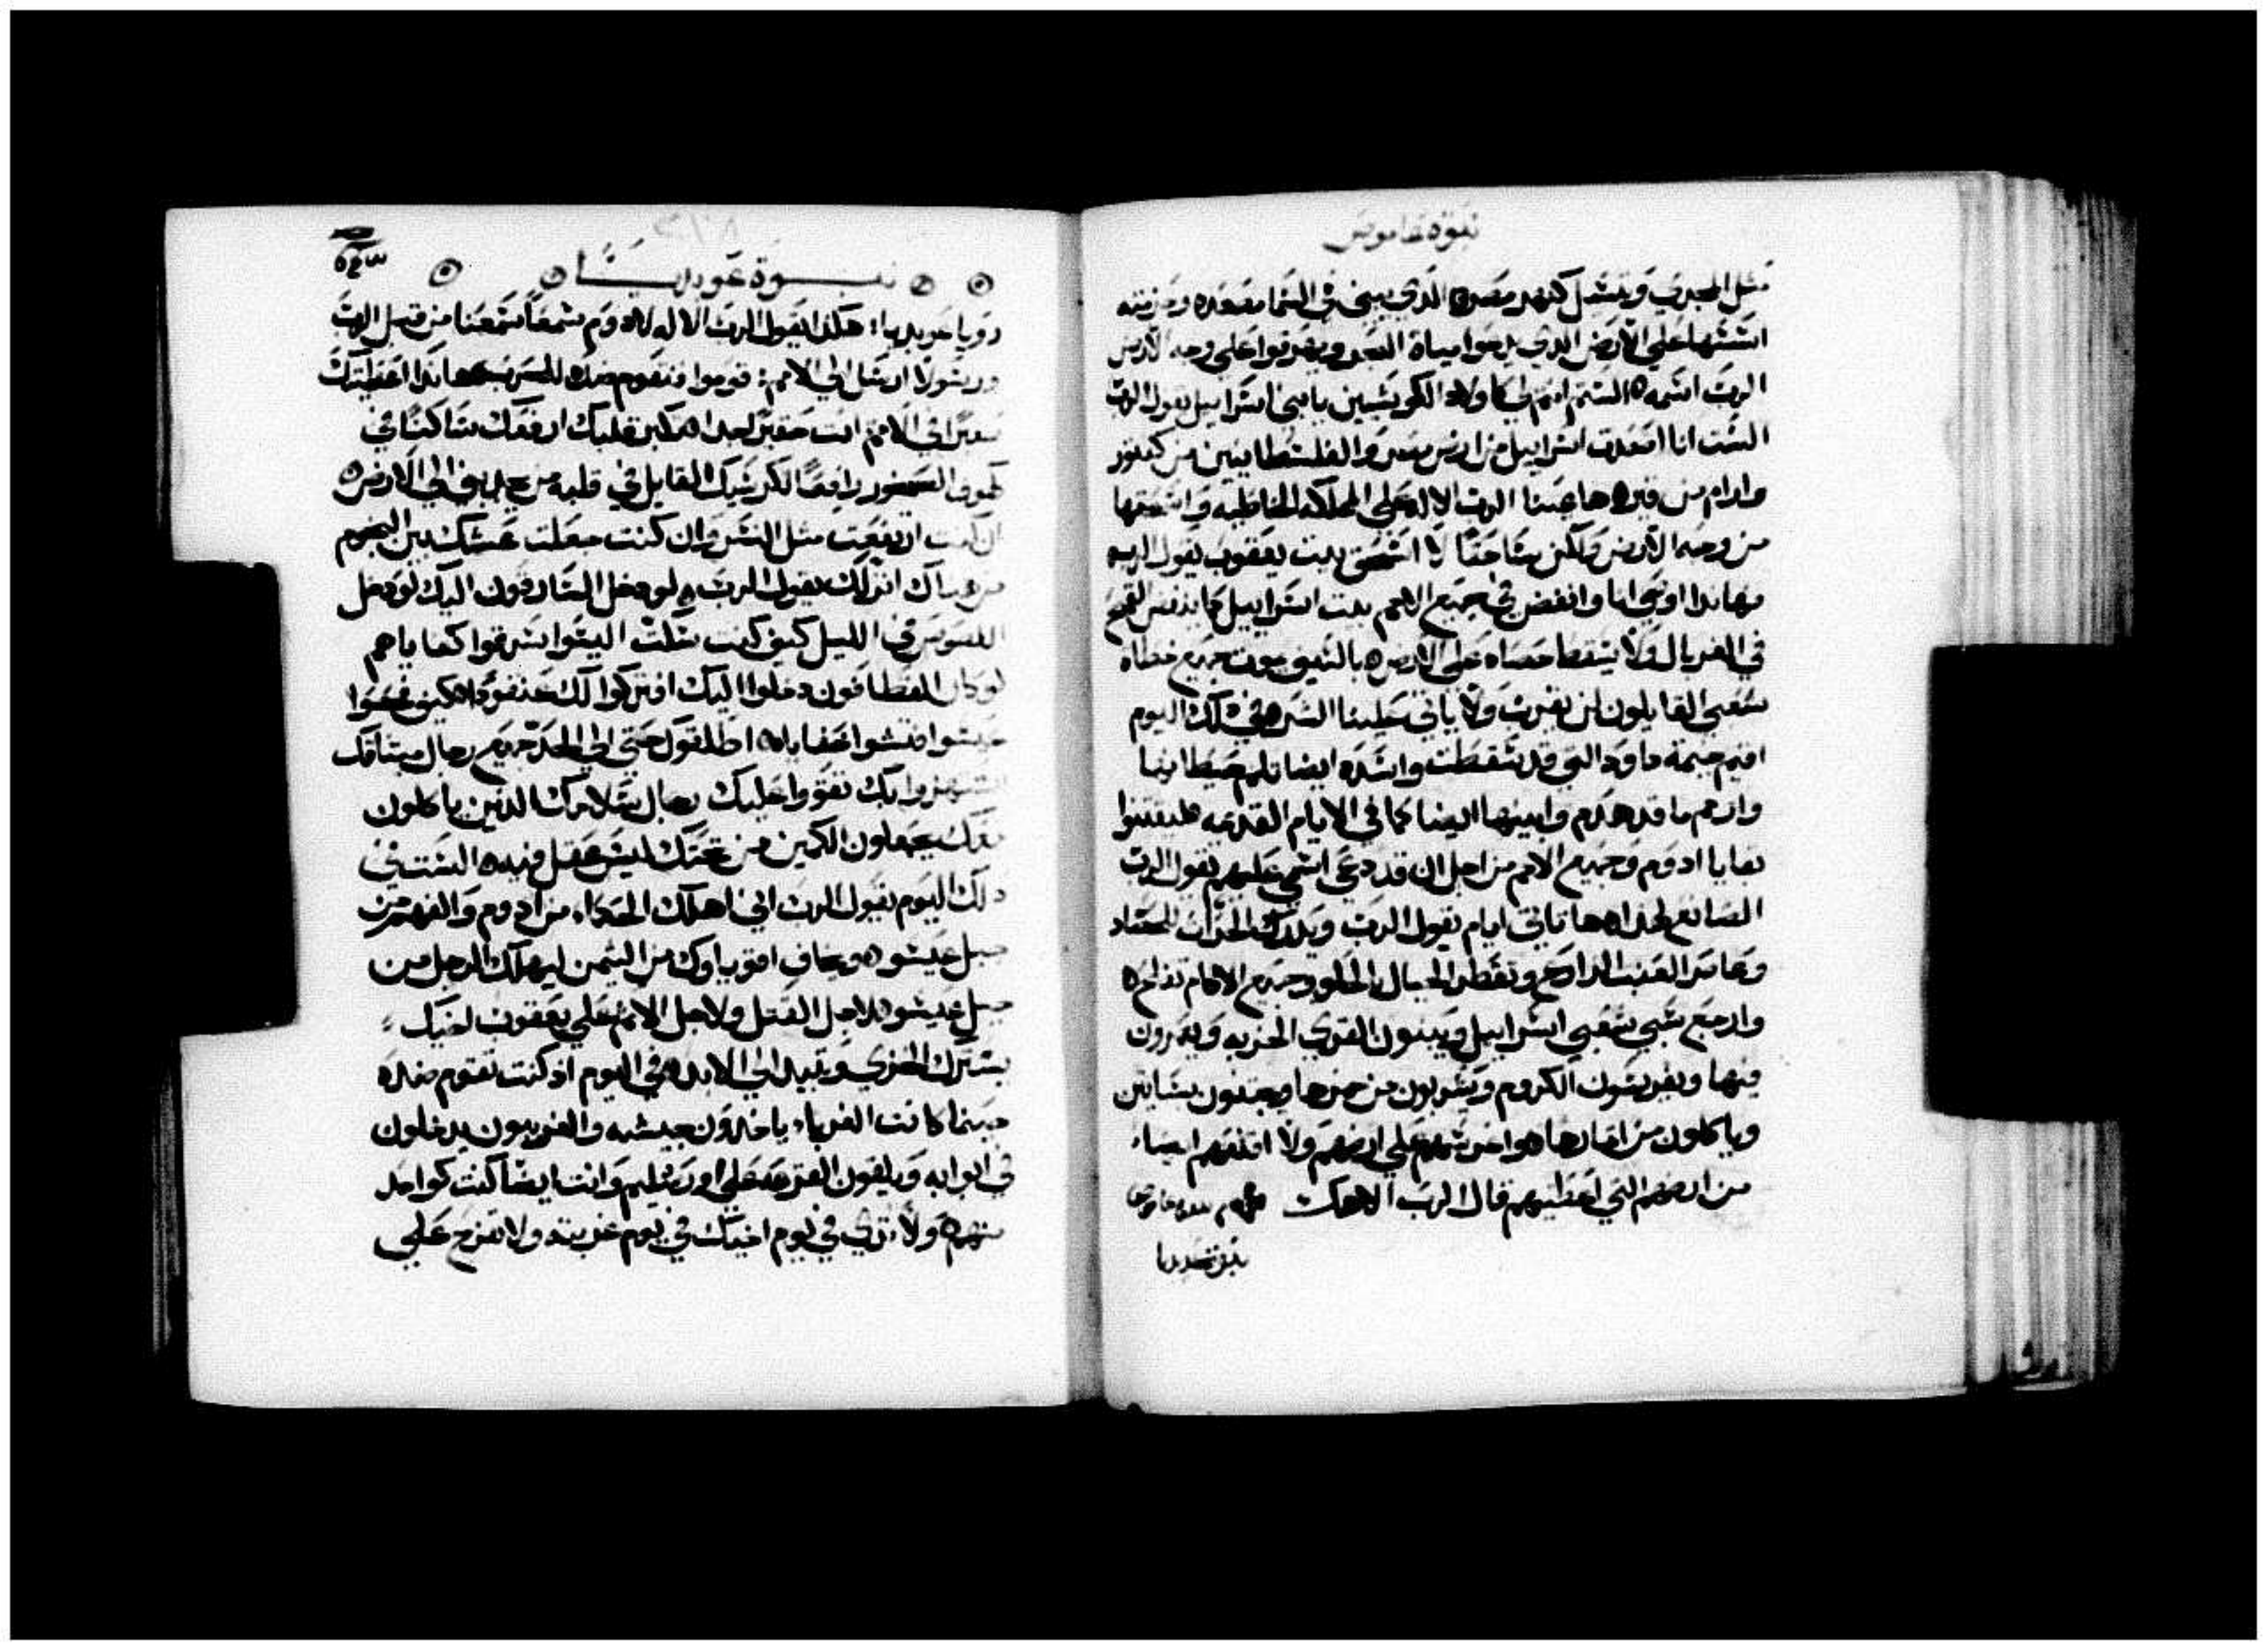 نبوة عاموص
مثل المجري وتنسل كنهر مصر الذي يبني في السما مصعده وحزمته
اسسها علي الارض الذي يدعوا مياة البحر ويهرقوا علي وجه الارض
الرب اسمه الستم انتم لي كاولاد الكوشيين يا بني اسراييل يقول الرب
الست انا اصعدت اسراييل من ارض مصر والفلسطانيين من كفتور
وارام من قيره ها عينا الرب الاله علي المملكة الخاطيه واسحقها
من وجه الارض ولكن ساحقا لا اسحق بيت يعقوب يقول الرب
فهاندا اوصي انا وانفض في جميع الامم بيت اسراييل كما ينفض القمح
في الغربال ولا يسقط حصاه علي الارض بالسيف يموت جميع خطاه
شعبي القايلون لن يقرب ولا ياتي علينا الشر في ذلك اليوم
اقيم خيمة داود التي قد سقطت واسده ايضا ثلم حيطانها
وارمم ما قد هدم وابنيها ايضا كما في الايام القديمه ليقتنوا
بقايا ادوم وجميع الامم من اجل ان قد دعي اسمي عليهم يقول الرب
الصانع لهذا ها تاتي ايام يقول الرب ويدرك الحراث الحصاد
وعاصر العنب الزارع وتقطر الجبال الحلو وجميع الاكام تفلح
وارجع سبي شعبي اسراييل ويبنون القري الخربه ويعمرون
فيها ويغرسون الكروم ويشربون من خمرها ويجنون بساتين
وياكلون من اثمارها واغرسهم علي ارضهم ولا اقلعهم ايضا
من ارضهم التي اعطيتهم قال الرب الاهك
نبوة عوبديا
نبوة عوبديا
رويا عوبديا هكذا يقول الرب الاله لادوم سمعا سمعنا من قبل الرب
ورسولا ارسل الي الامم قوموا فنقوم ضده للحرب هاندا اعطيتك
صغيرا في الامم انت حقير جدا كبر قلبك ارفعك ساكنا في
كهوف الصخور رافعا كرسيك القايل في قلبه من يحدرني الي الارض
ان كنت ارتفعت مثل النسر وان كنت جعلت عشك بين النجوم
من هناك انزلك يقول الرب لو دخل السارقون اليك لو دخل
اللصوص في الليل كيف كنت سكت اليسوا سرقوا كفاياهم
لو كان القطافون دخلوا اليك اما تركوا لك عنقودا كيف فحصوا
عيسوا فتشوا خفاياه اطلقوك حتي الي الحد جميع رجال ميثاقك
استهزوا بك تقووا عليك رجال سلامك الذين ياكلون
معك يجعلون الكمين من تحتك ليس عقل فيه الست في
ذلك اليوم يقول الرب اني اهلك الحكماء من ادوم والفهم من
جبل عيسو ويخاف اقوياوك من التيمن ليهلك الرجل من
جبل عيسو لاجل القتل ولاجل الاثم علي يعقوب اخيك
يسترك الخزي وتبيد الي الابد في اليوم اذ كنت تقوم ضده
حينما كانت الغرباء ياخذون جيشه والغريبون يدخلون
في ابوابه ويلقون القرعه علي اورشليم وانت ايضا كنت كواحد
منهم ولا تري في يوم اخيك في يوم غربته ولا تفرح علي